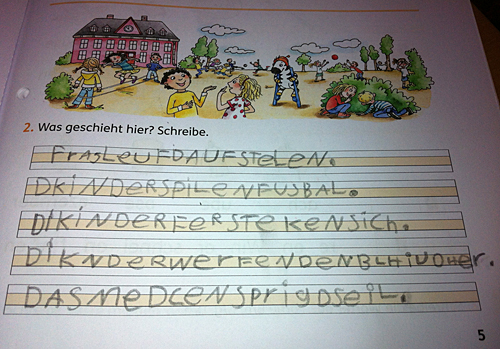 2. Was geschieht hier? Schreibe.
FrasLEUFDAUFSteLEN.
DKiNDERSPiLENFUSBAL.
DiKiNDERFERSTEKENSich.
DiKNDERWERFENDENBLHiUOHer.
DASMEDCENSpriGDSEiL.
5